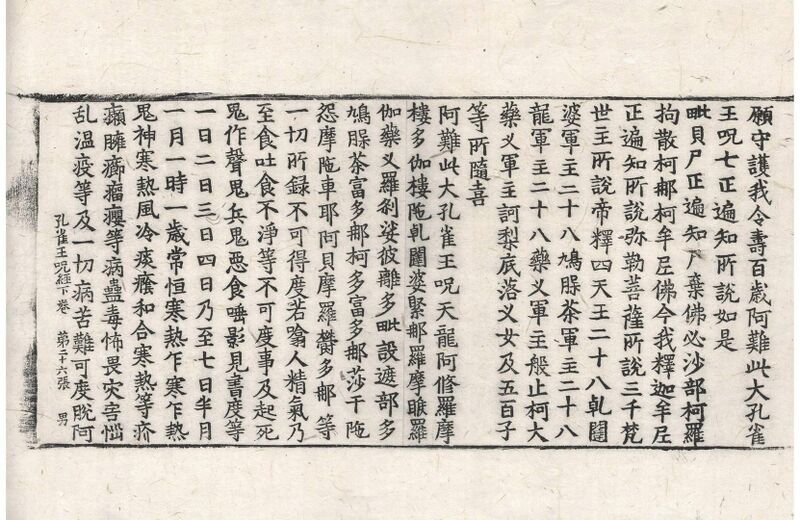 願守護我令壽百歲阿難此大孔雀
王呪七正遍知所說如是
毗貝尸正遍知尸棄佛必沙部柯羅
拘散柯那柯牟尼佛今我釋迦牟尼
正遍知所說弥勒菩薩所說三千梵
世主所說帝釋四天王二十八乹闥
婆軍主二十八鳩𦡀茶軍主二十八
龍軍主二十八藥义軍主般止柯大
藥义軍主訶梨底落义女及五百子
等所隨喜
阿難此大孔雀王呪天龍阿修羅摩
樓多伽樓陁乹闥婆緊那羅摩睺羅
伽藥义羅刹娑彼離多毗設遮部多
鳩𦡀茶富多那柯多富多那莎干陁
怨摩陁車耶阿貝摩羅欝多那等
一切所錄不可得度若噏人精氣乃
至食吐食不淨等不可度事及起死
鬼作聲鬼兵鬼惡食影見書度等
一日二日三日四日乃至七日半月
一月一時一歲常恒寒熱乍寒乍熱
鬼神寒熱風冷痰癊和合寒熱等疥
癩癰癤瘤癭等病蠱毒怖畏灾害惱
乱温疫等及一切病苦難可度脫阿
孔雀王呪經下卷 第二十六張 男